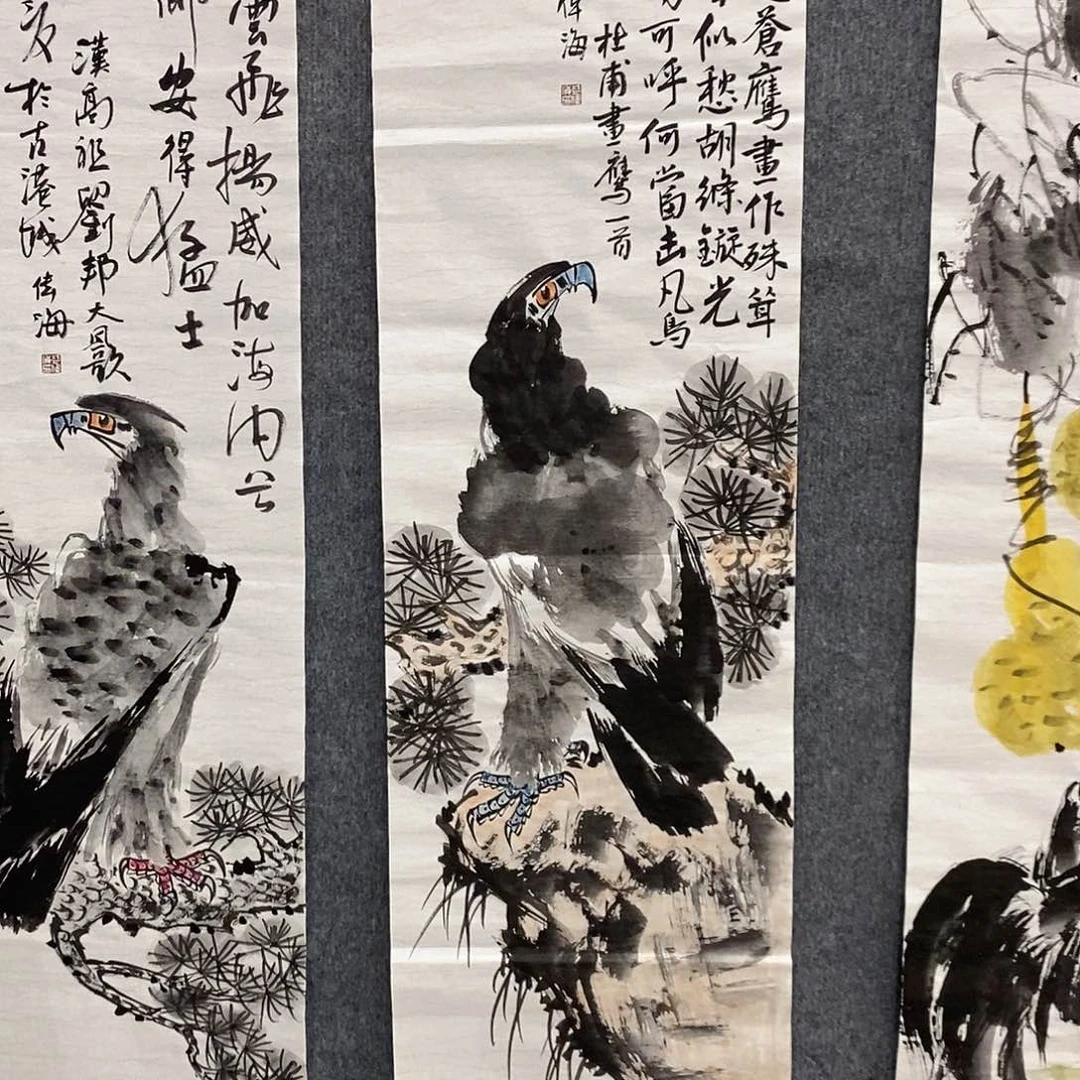 蒼鷹畫作殊聳
似愁胡絛鏇光
可呼何當击凡鳥
杜甫畫鷹一首
偉海
雲飛揚威加海内兮
鄉安得猛士
漢高祖劉邦大風歌
於古港城偉海